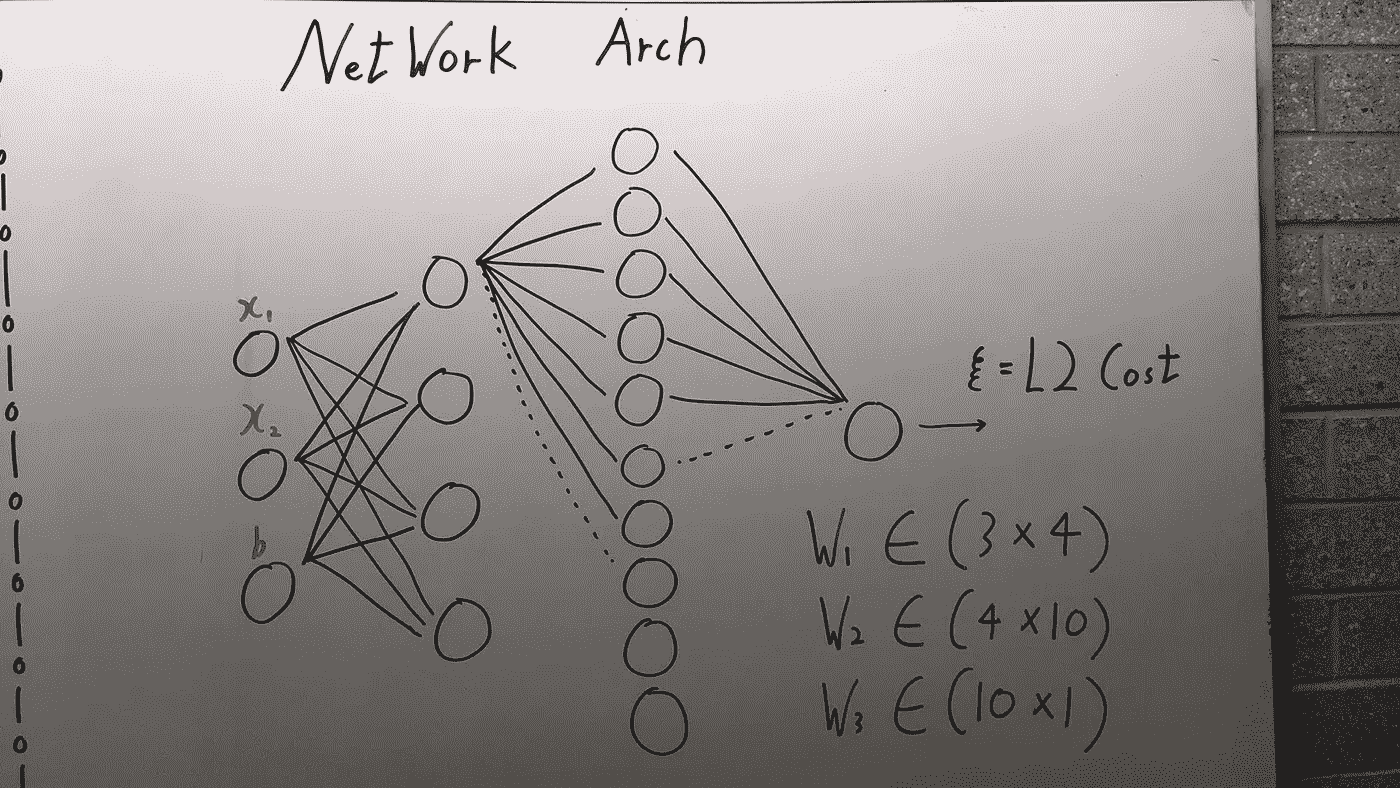 NetWork Arch
x₁
x₂
b
ξ = L2 Cost
W₁ ∈ (3 × 4)
W₂ ∈ (4 × 10)
W₃ ∈ (10 × 1)